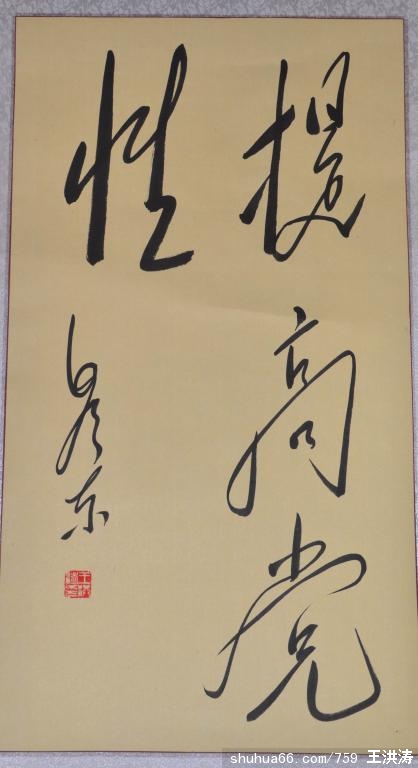 提高党
性
泽东
shuhua66.com/759 王洪涛